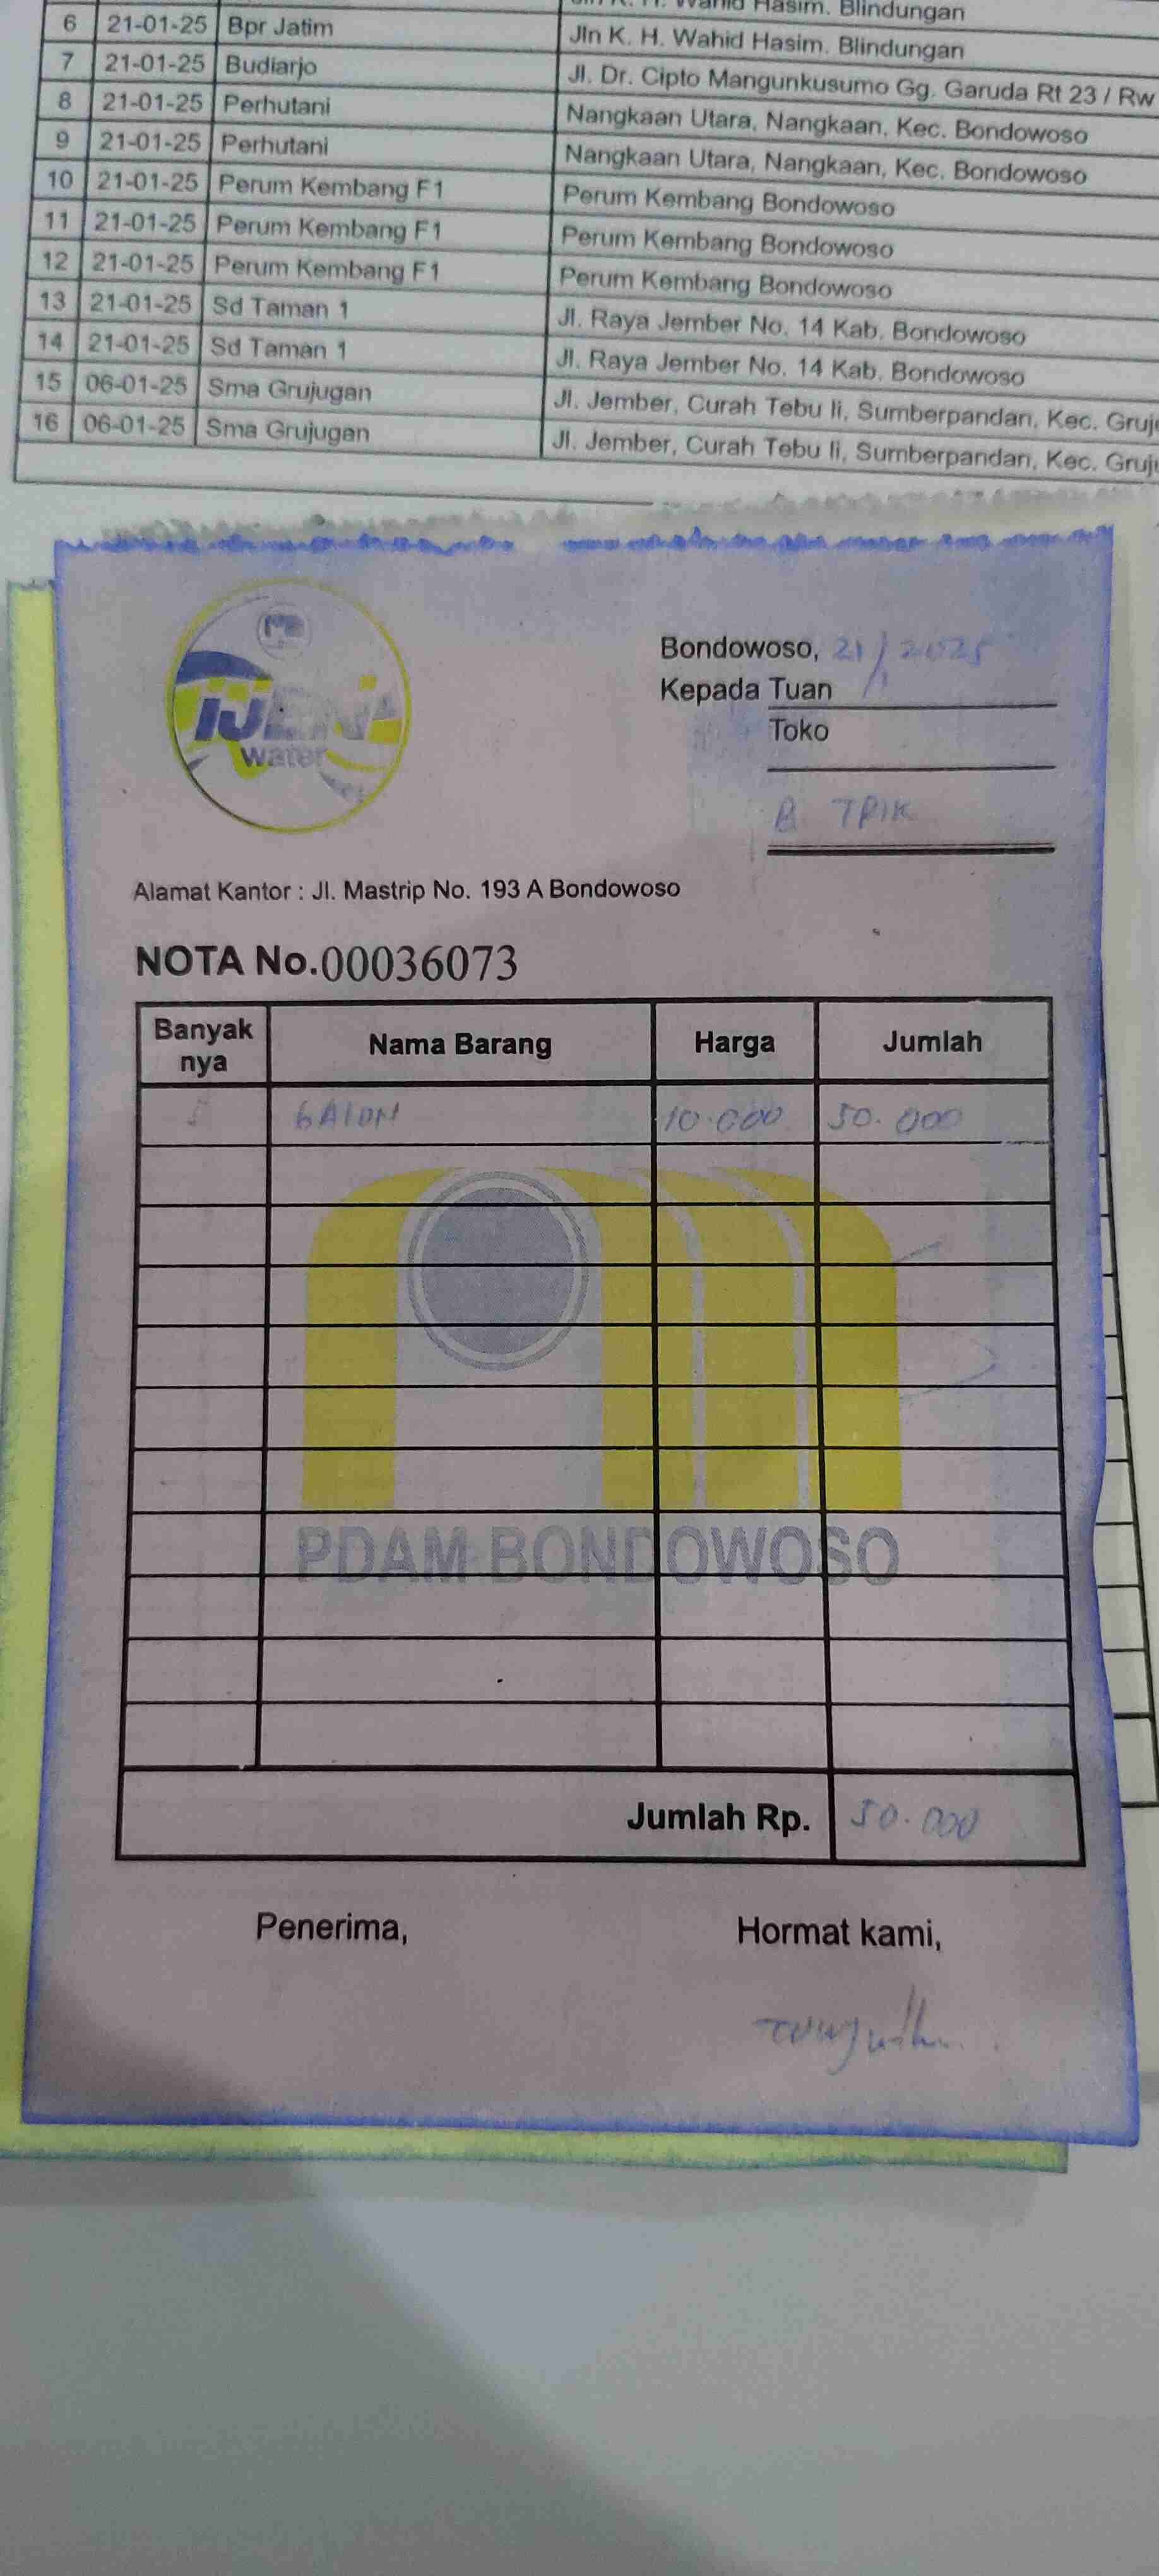 Wahid Hasim. Blindungan
6 21-01-25 Bpr Jatim Jln K. H. Wahid Hasim. Blindungan
7 21-01-25 Budiarjo Jl. Dr. Cipto Mangunkusumo Gg. Garuda Rt 23 / Rw
8 21-01-25 Perhutani Nangkaan Utara, Nangkaan, Kec. Bondowoso
9 21-01-25 Perhutani Nangkaan Utara, Nangkaan, Kec. Bondowoso
10 21-01-25 Perum Kembang F1 Perum Kembang Bondowoso
11 21-01-25 Perum Kembang F1 Perum Kembang Bondowoso
12 21-01-25 Perum Kembang F1 Perum Kembang Bondowoso
13 21-01-25 Sd Taman 1 Jl. Raya Jember No. 14 Kab. Bondowoso
14 21-01-25 Sd Taman 1 Jl. Raya Jember No. 14 Kab. Bondowoso
15 06-01-25 Sma Grujugan Jl. Jember, Curah Tebu Ii, Sumberpandan, Kec. Gruj
16 06-01-25 Sma Grujugan Jl. Jember, Curah Tebu Ii, Sumberpandan, Kec. Gruj
IJEN
Water
Bondowoso, 21/1 2025
Kepada Tuan
Toko
B TRIK
Alamat Kantor : Jl. Mastrip No. 193 A Bondowoso
NOTA No.00036073
Banyak nya Nama Barang Harga Jumlah
5 GALON 10.000 50.000
PDAM BONDOWOSO
Jumlah Rp. 50.000
Penerima, Hormat kami,